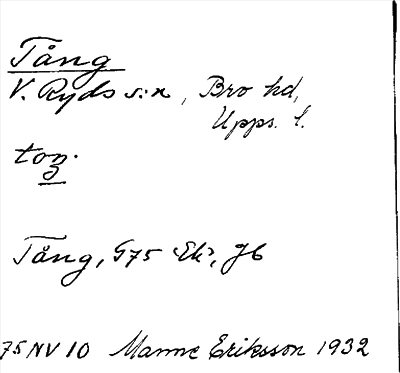 Tång
V. Ryds s:n, Bro hd,
Upps. l.
toŋ.
Tång, G75 Ek, Jb
75 NV 10 Manne Eriksson 1932